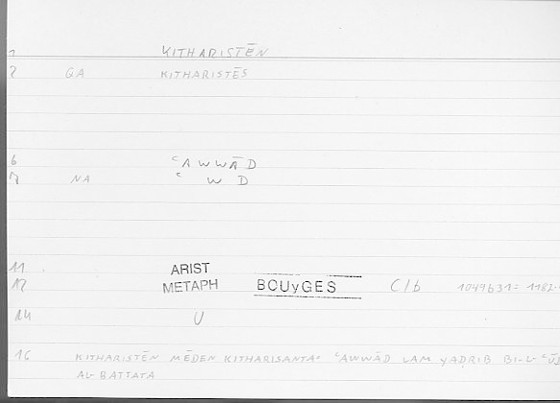 1 KITHARISTĒN
2 GA KITHARISTĒS
6 ᶜAWWĀD
7 NA ᶜ W D
11 ARIST
12 METAPH BOUyGES C/b 1049b31= 1182
14 U
16 KITHARISTĒN MĒDEN KITHARISANTA= ᶜAWWĀD LAM YADRIB BI-L-ᶜŪD
AL-BATTATA